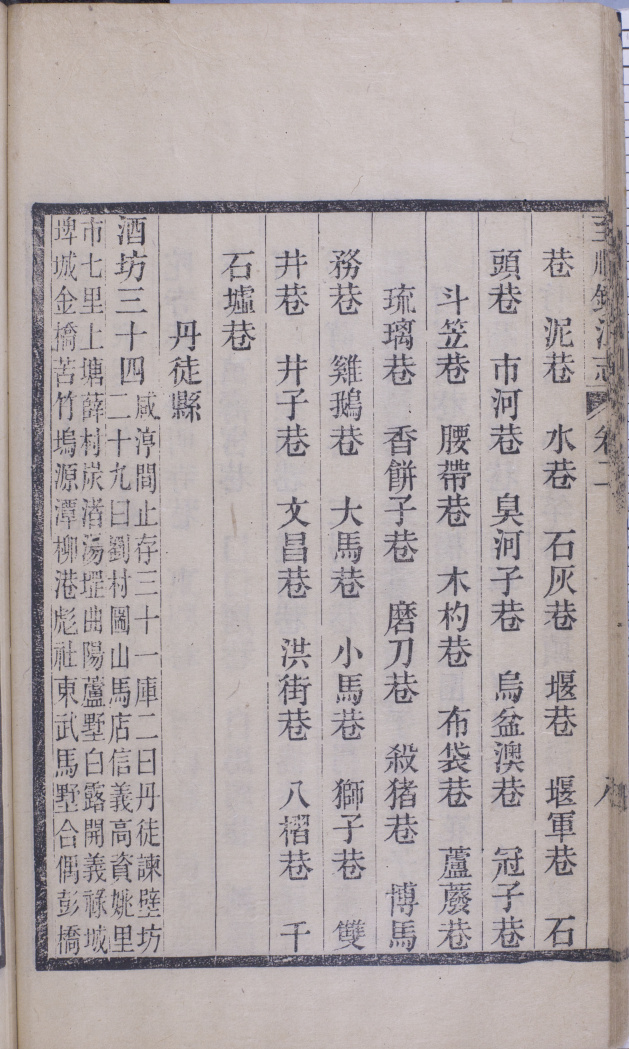 至順鎮江志 卷二 八
巷 泥巷 水巷 石灰巷 堰巷 堰軍巷 石
頭巷 市河巷 臭河子巷 烏盆澳巷 冠子巷
斗笠巷 腰帶巷 木杓巷 布袋巷 蘆蕟巷
琉璃巷 香餅子巷 磨刀巷 殺猪巷 博馬
務巷 雞鵝巷 大馬巷 小馬巷 獅子巷 雙
井巷 井子巷 文昌巷 洪街巷 八摺巷 千
石墟巷
丹徒縣
酒坊三十四
咸淳間止存三十一庫二曰丹徒諫壁坊
二十九曰劉村圌山馬店信義高資姚里
市七里上塘薛村炭渚湯堽曲陽蘆墅白露開義祿城
埤城金橋苦竹塢源潭柳港彪社東武馬墅合偶彭橋